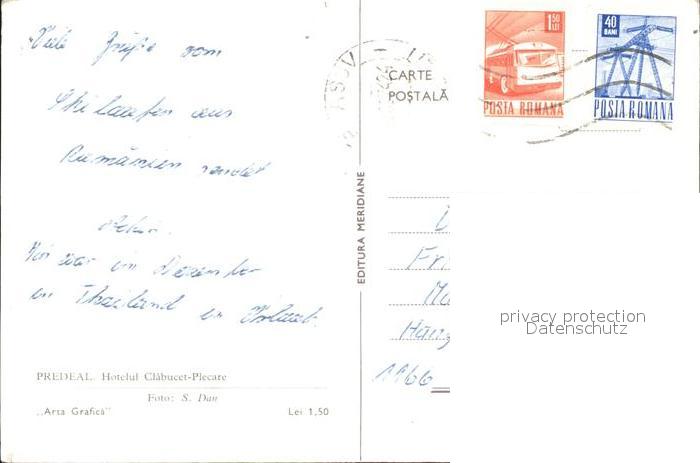 Viele Grüße vom
Skilaufen aus
Rumänien sendet
im Dezember
in Thailand in Urlaub.
PREDEAL. Hotelul Clăbucet-Plecare
Foto: S. Dan
„Arta Grafică"
Lei 1,50
EDITURA MERIDIANE
CARTE
POȘTALĂ
1,50
LEI
POSTA ROMANA
40
BANI
POSTA ROMANA
1166
privacy protection
Datenschutz